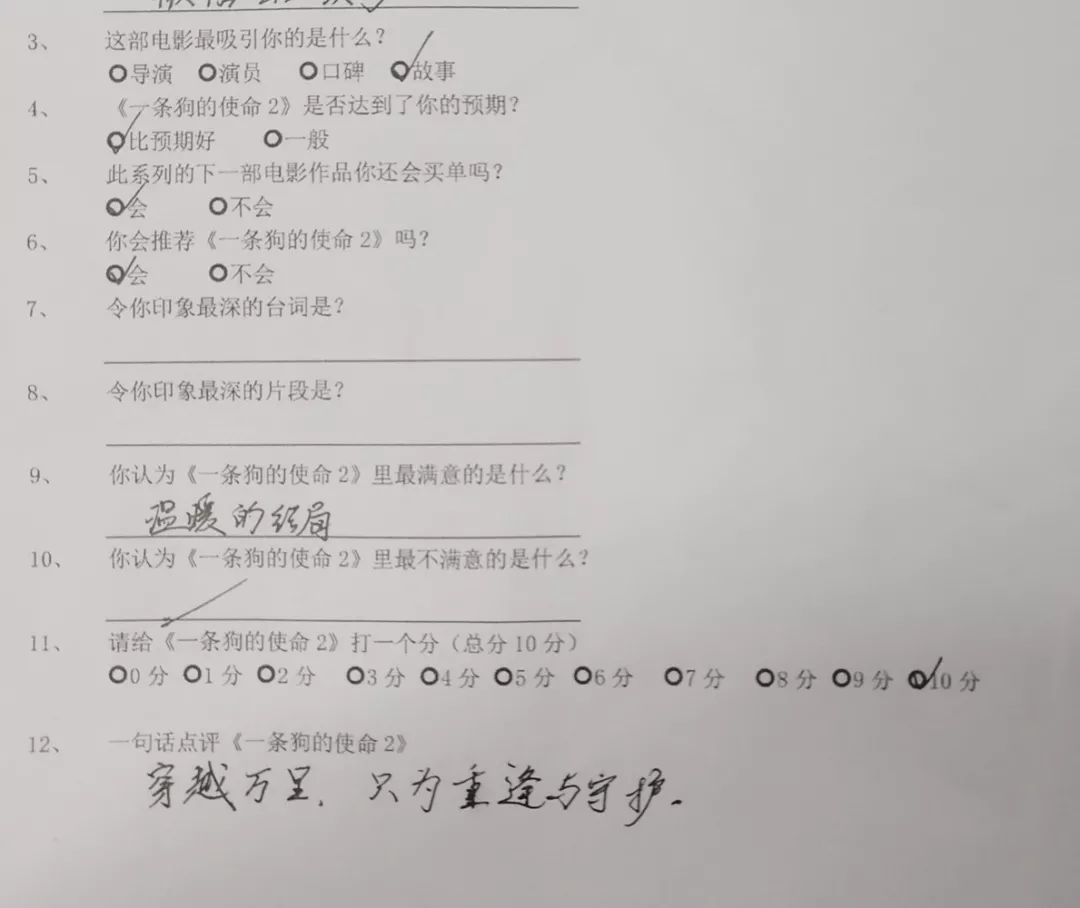 3、 这部电影最吸引你的是什么?
导演 演员 口碑 故事
4、 《一条狗的使命 2》是否达到了你的预期?
比预期好 一般
5、 此系列的下一部电影作品你还会买单吗?
会 不会
6、 你会推荐《一条狗的使命 2》吗?
会 不会
7、 令你印象最深的台词是?
8、 令你印象最深的片段是?
9、 你认为《一条狗的使命 2》里最满意的是什么?
温暖的结局
10、 你认为《一条狗的使命 2》里最不满意的是什么?
11、 请给《一条狗的使命 2》打一个分(总分 10 分)
0 分 1 分 2 分 3 分 4 分 5 分 6 分 7 分 8 分 9 分 10 分
12、 一句话点评《一条狗的使命 2》
穿越万里,只为重逢与守护.